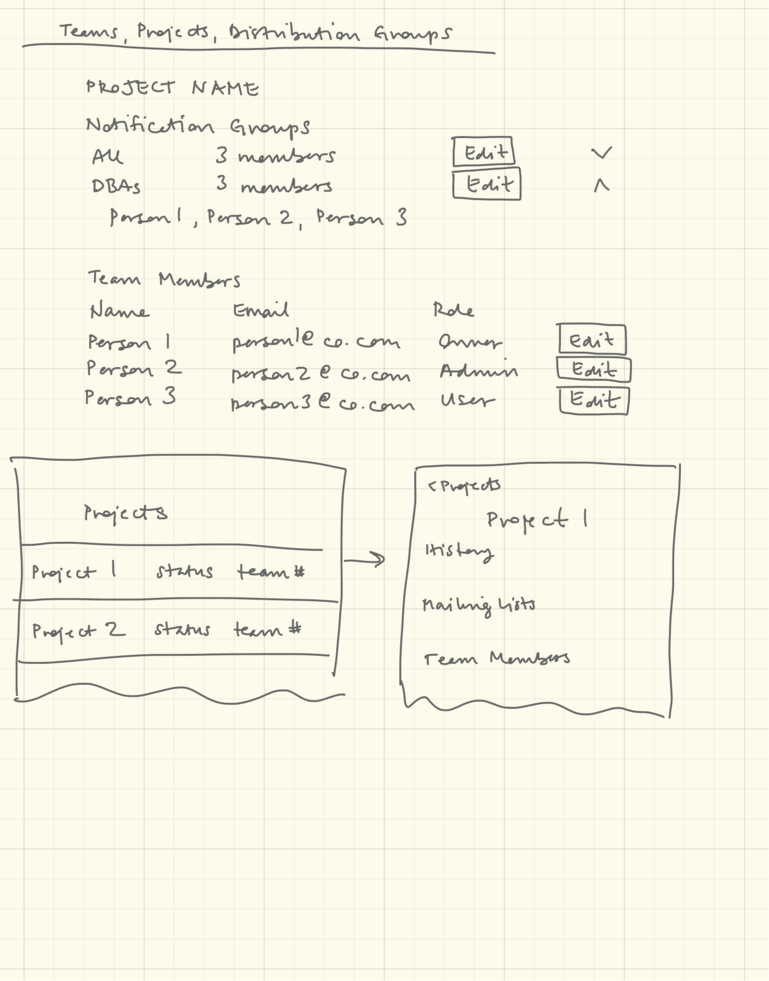 Teams, Projects, Distribution Groups
PROJECT NAME
Notification Groups
All 3 members Edit
DBAs 3 members Edit
Person 1, Person 2, Person 3
Team Members
Name Email Role
Person 1 person1@co.com Owner Edit
Person 2 person2@co.com Admin Edit
Person 3 person3@co.com User Edit
Projects
Project 1 status team#
Project 2 status team#
< Projects
Project 1
History
Mailing Lists
Team Members